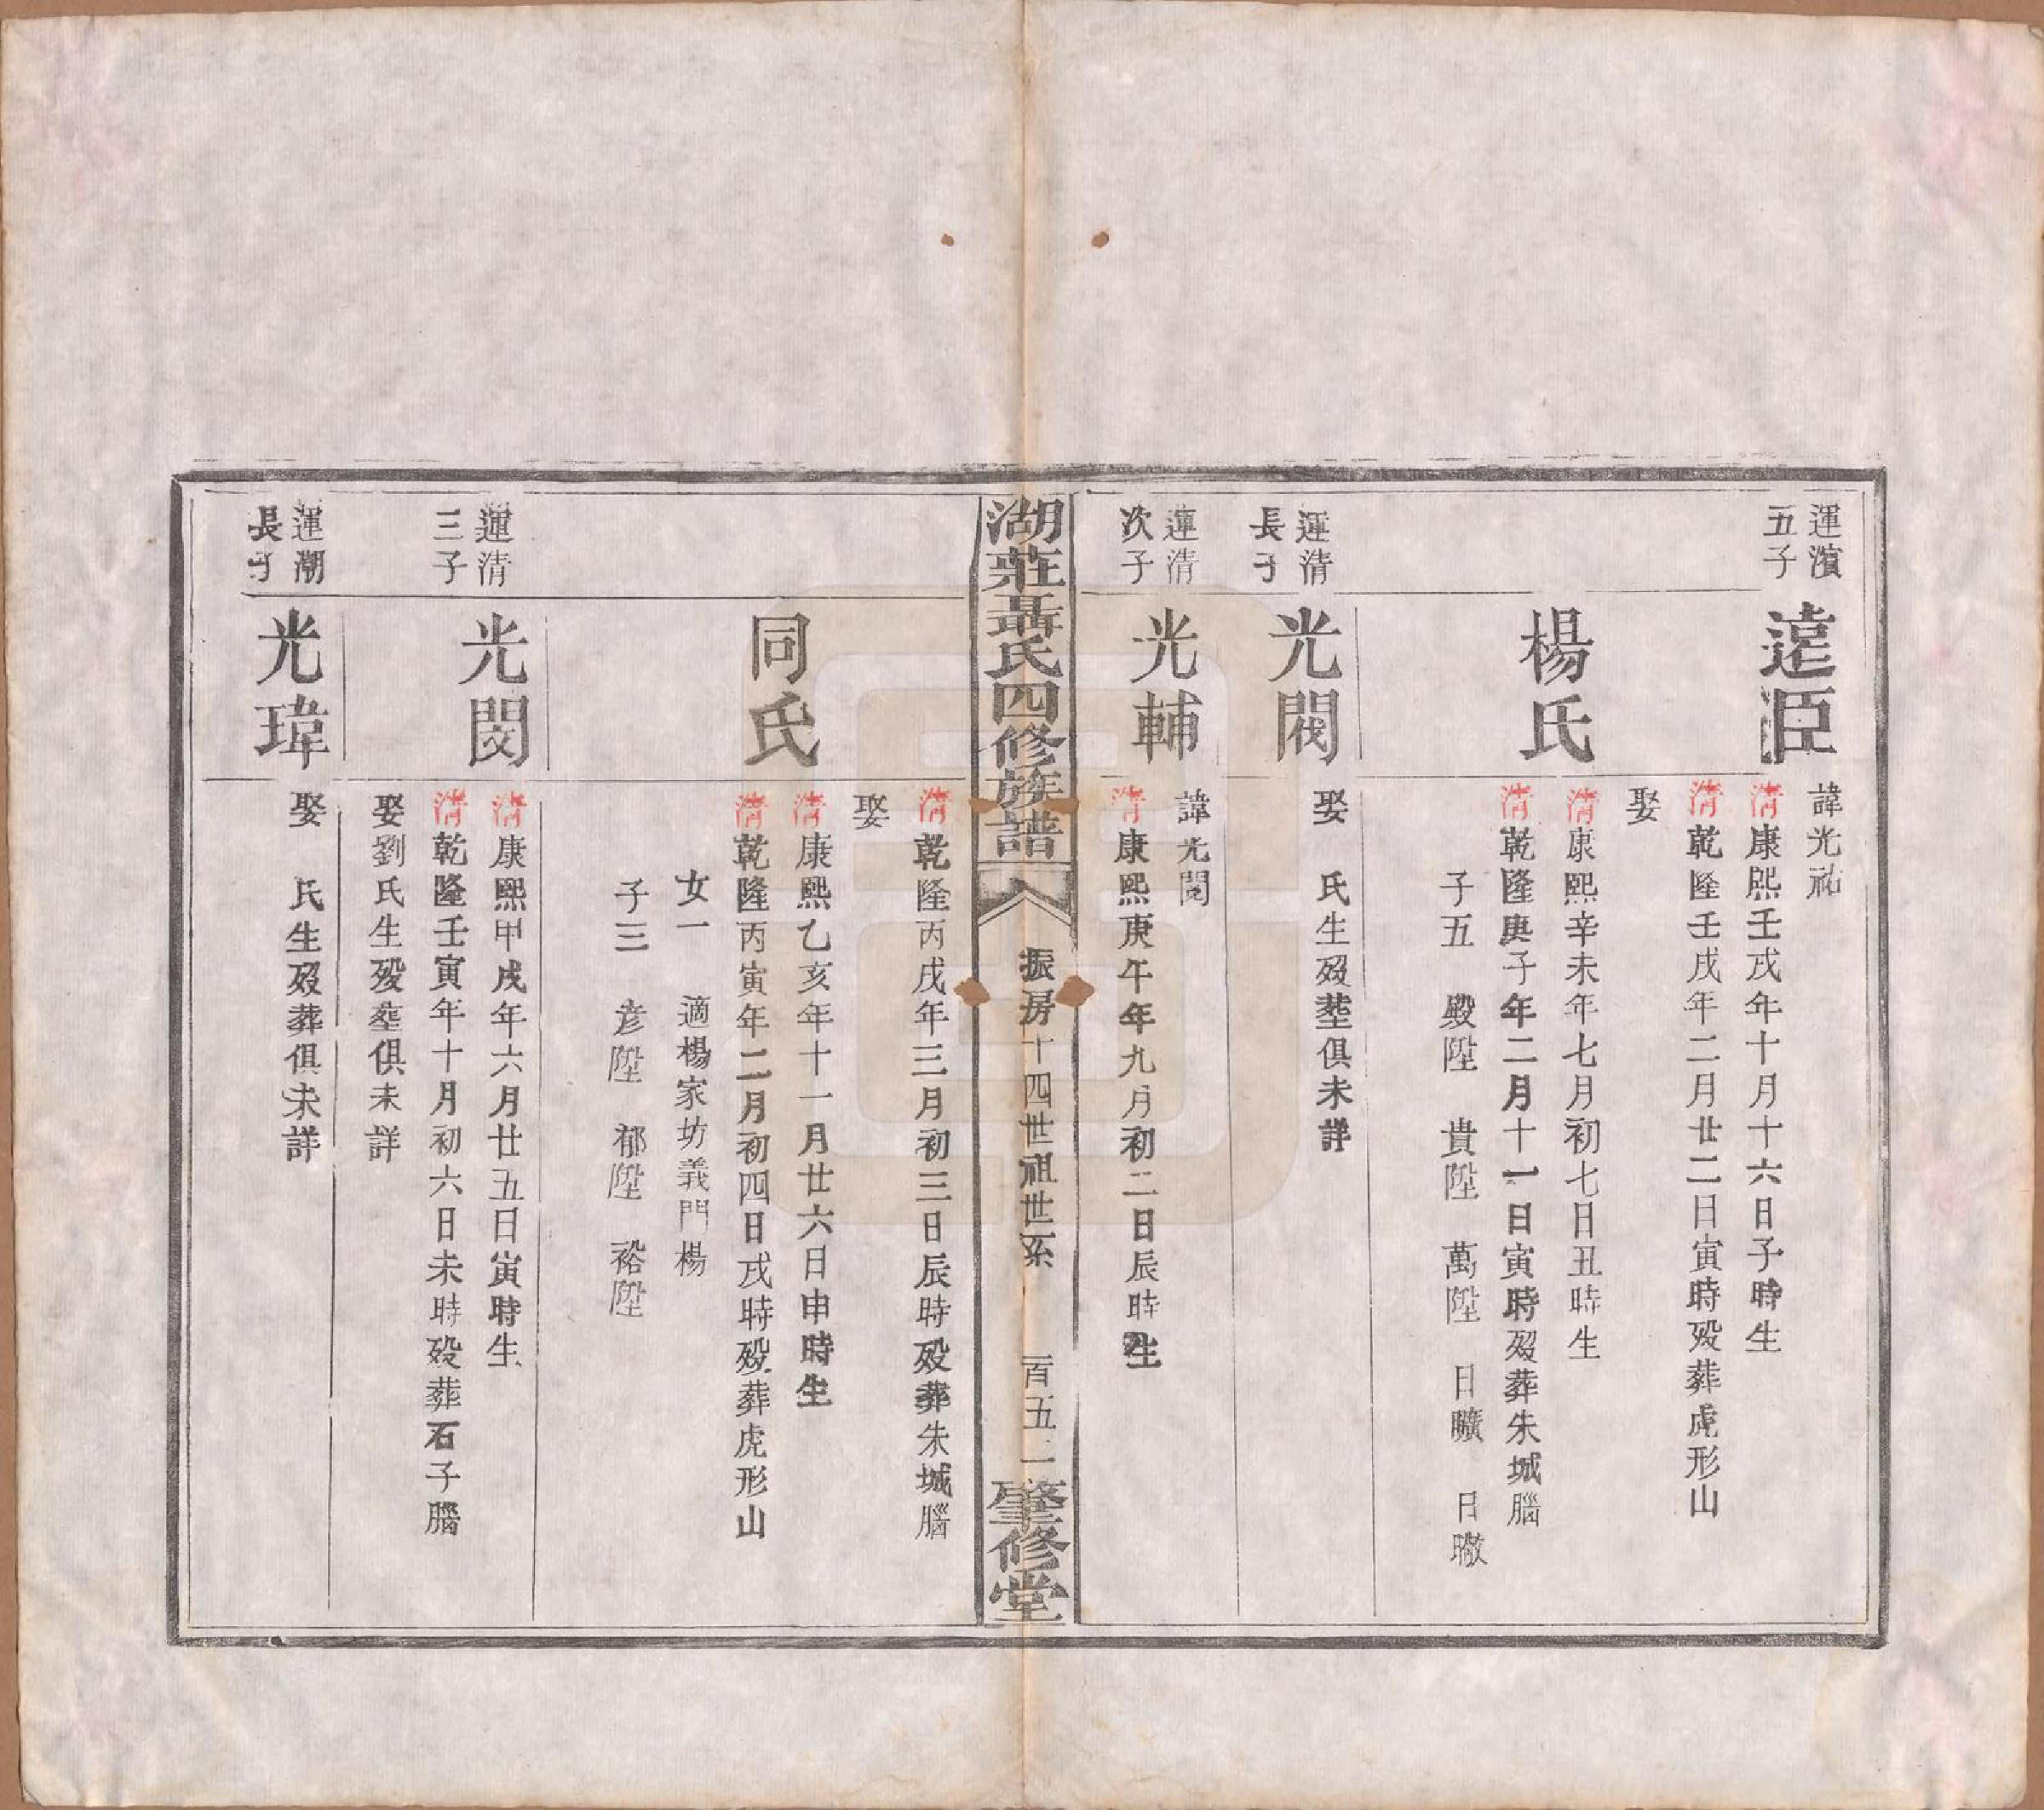 運濱
五子
遠臣
諱光祐
清康熙壬戌年十月十六日子時生
清乾隆壬戌年二月廿二日寅時歿葬虎形山
娶
楊氏
清康熙辛未年七月初七日丑時生
清乾隆庚子年二月十一日寅時歿葬朱城腦
子五 殿陞 貴陞 萬陞 日曠 日暾
運清
長子
光閥
娶 氏生歿塟俱未詳
運清
次子
光輔
諱光閣
清康熙庚午年九月初二日辰時生
湖莊聶氏四修族譜
振房十四世祖世系
一百五二
肇修堂
清乾隆丙戌年三月初三日辰時歿葬朱城腦
娶
同氏
清康熙乙亥年十一月廿六日申時生
清乾隆丙寅年二月初四日戌時歿葬虎形山
女一 適楊家坊義門楊
子三 彥陞 郁陞 裕陞
運清
三子
光閔
清康熙甲戌年六月廿五日寅時生
清乾隆壬寅年十月初六日未時歿葬石子腦
娶劉氏生歿塟俱未詳
運潮
長子
光瑋
娶 氏生歿葬俱未詳